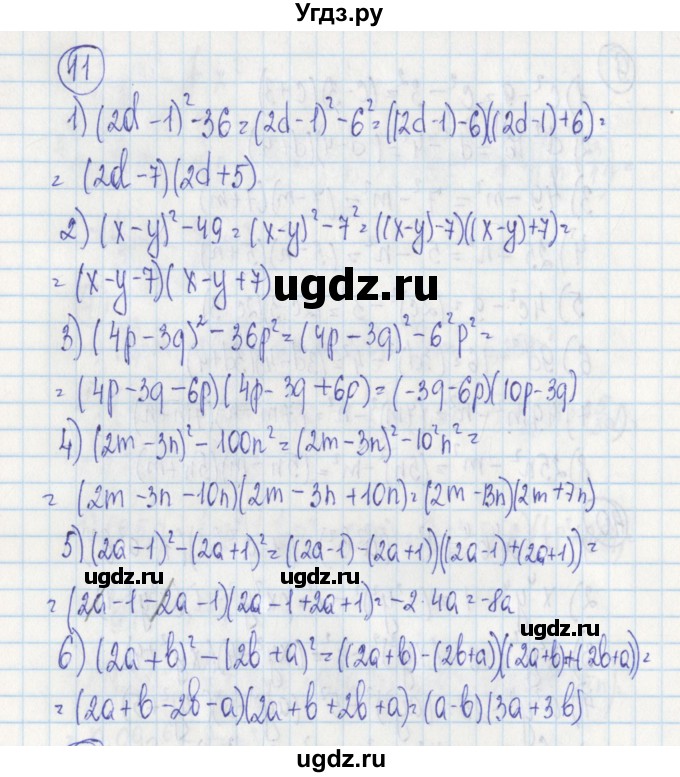 Угдз.ру
11
1) (2d - 1)² - 36 = (2d - 1)² - 6² = ((2d-1) - 6)((2d-1) + 6) =
= (2d - 7)(2d + 5)
2) (x - y)² - 49 = (x-y)² - 7² = ((x-y) - 7)((x-y) + 7) =
= (x - y - 7)(x - y + 7)
ugdz.ru
3) (4p - 3q)² - 36p² = (4p - 3q)² - 6²p² =
= (4p - 3q - 6p)(4p - 3q + 6p) = (-3q - 6p)(10p - 3q)
4) (2m - 3n)² - 100n² = (2m - 3n)² - 10²n² =
= (2m - 3n - 10n)(2m - 3n + 10n) = (2m - 13n)(2m + 7n)
5) (2a - 1)² - (2a + 1)² = ((2a-1) - (2a+1))((2a-1) + (2a+1)) =
ugdz.ru ugdz.ru
= (2a - 1 - 2a - 1)(2a - 1 + 2a + 1) = -2 · 4a = -8a
ugdz.ru
6) (2a + b)² - (2b + a)² = ((2a+b) - (2b+a))((2a+b) + (2b+a)) =
= (2a + b - 2b - a)(2a + b + 2b + a) = (a - b)(3a + 3b)
ugdz.ru